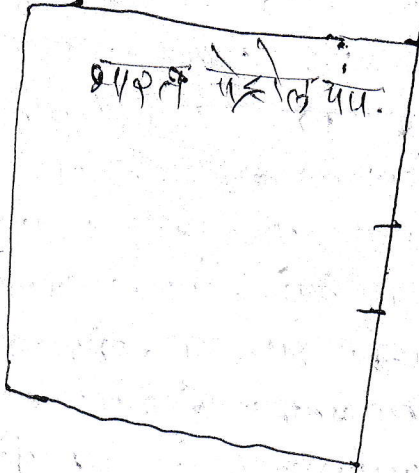 भारत पेट्रोल पंप.